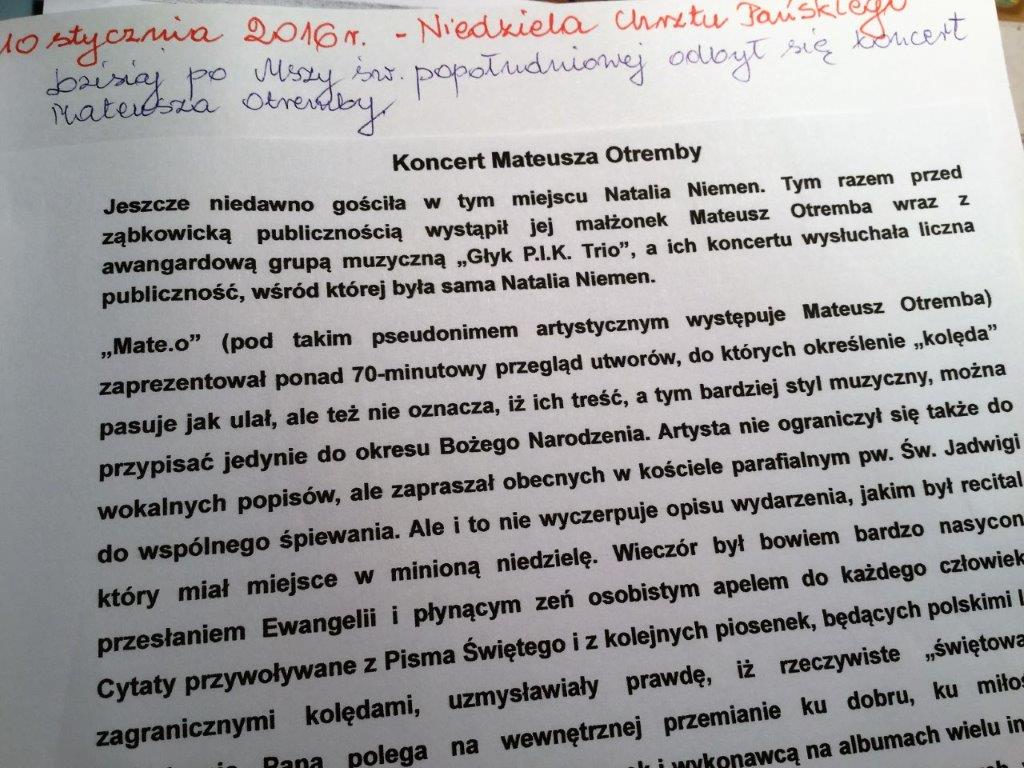 10 stycznia 2016 r. - Niedziela Chrztu Pańskiego
Dzisiaj po Mszy św. popołudniowej odbył się koncert
Mateusza Otremby.
Koncert Mateusza Otremby
Jeszcze niedawno gościła w tym miejscu Natalia Niemen. Tym razem przed
ząbkowicką publicznością wystąpił jej małżonek Mateusz Otremba wraz z
awangardową grupą muzyczną „Głyk P.I.K. Trio”, a ich koncertu wysłuchała liczna
publiczność, wśród której była sama Natalia Niemen.
„Mate.o” (pod takim pseudonimem artystycznym występuje Mateusz Otremba)
zaprezentował ponad 70-minutowy przegląd utworów, do których określenie „kolęda”
pasuje jak ulał, ale też nie oznacza, iż ich treść, a tym bardziej styl muzyczny, można
przypisać jedynie do okresu Bożego Narodzenia. Artysta nie ograniczył się także do
wokalnych popisów, ale zapraszał obecnych w kościele parafialnym pw. Św. Jadwigi
do wspólnego śpiewania. Ale i to nie wyczerpuje opisu wydarzenia, jakim był recital
który miał miejsce w minioną niedzielę. Wieczór był bowiem bardzo nasycon
przesłaniem Ewangelii i płynącym zeń osobistym apelem do każdego człowiek
Cytaty przywoływane z Pisma Świętego i z kolejnych piosenek, będących polskimi
zagranicznymi kolędami, uzmysławiały prawdę, iż rzeczywiste „świętowa
Pana polega na wewnętrznej przemianie ku dobru, ku miłoś
i wykonawcą na albumach wielu in